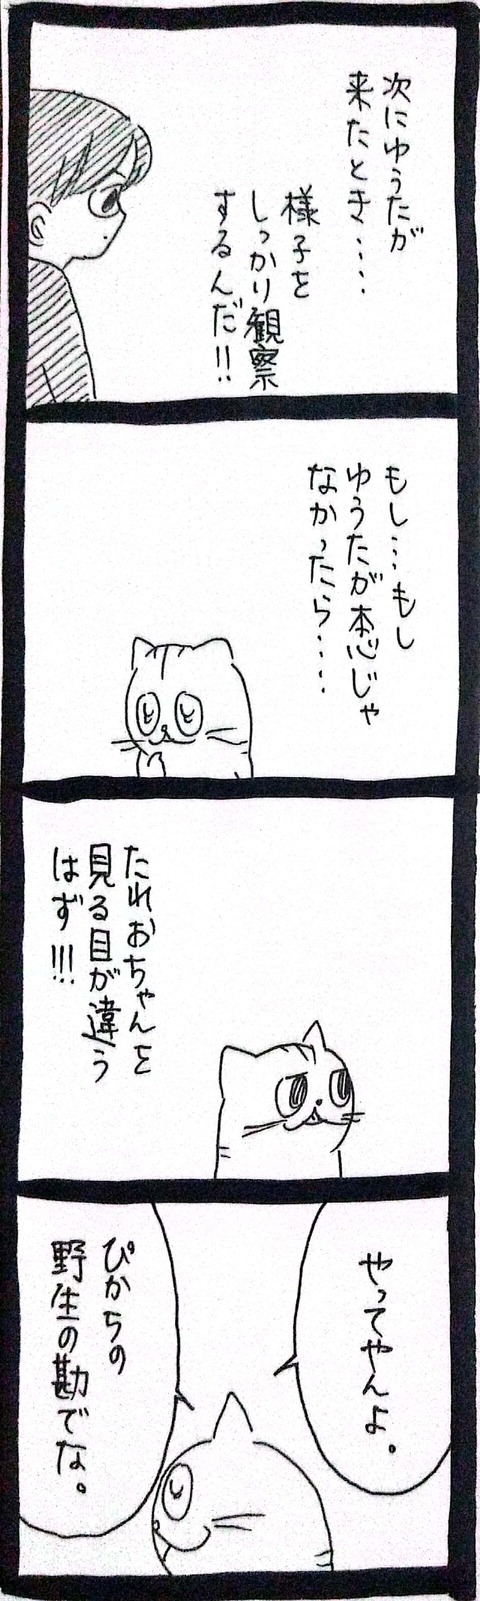 次にゆうたが
来たとき‥‥
様子を
しっかり観察
するんだ!!
もし…もし
ゆうたが本心じゃ
なかったら‥‥
たれおちゃんを
見る目が違う
はず!!!
やってやんよ。
ぴかちの
野生の勘でな。